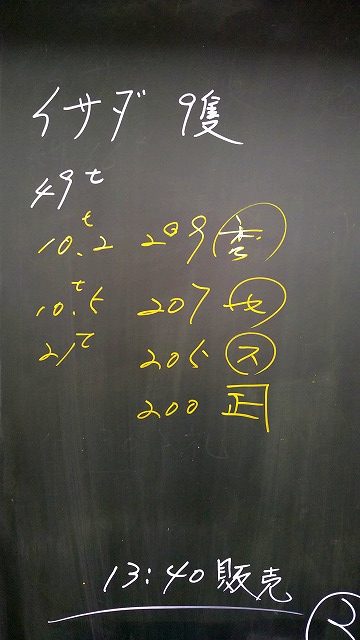 イサダ 9隻
49t
10.2t 209
10.5t 207
21t 205 ス
200 正
13:40 販売